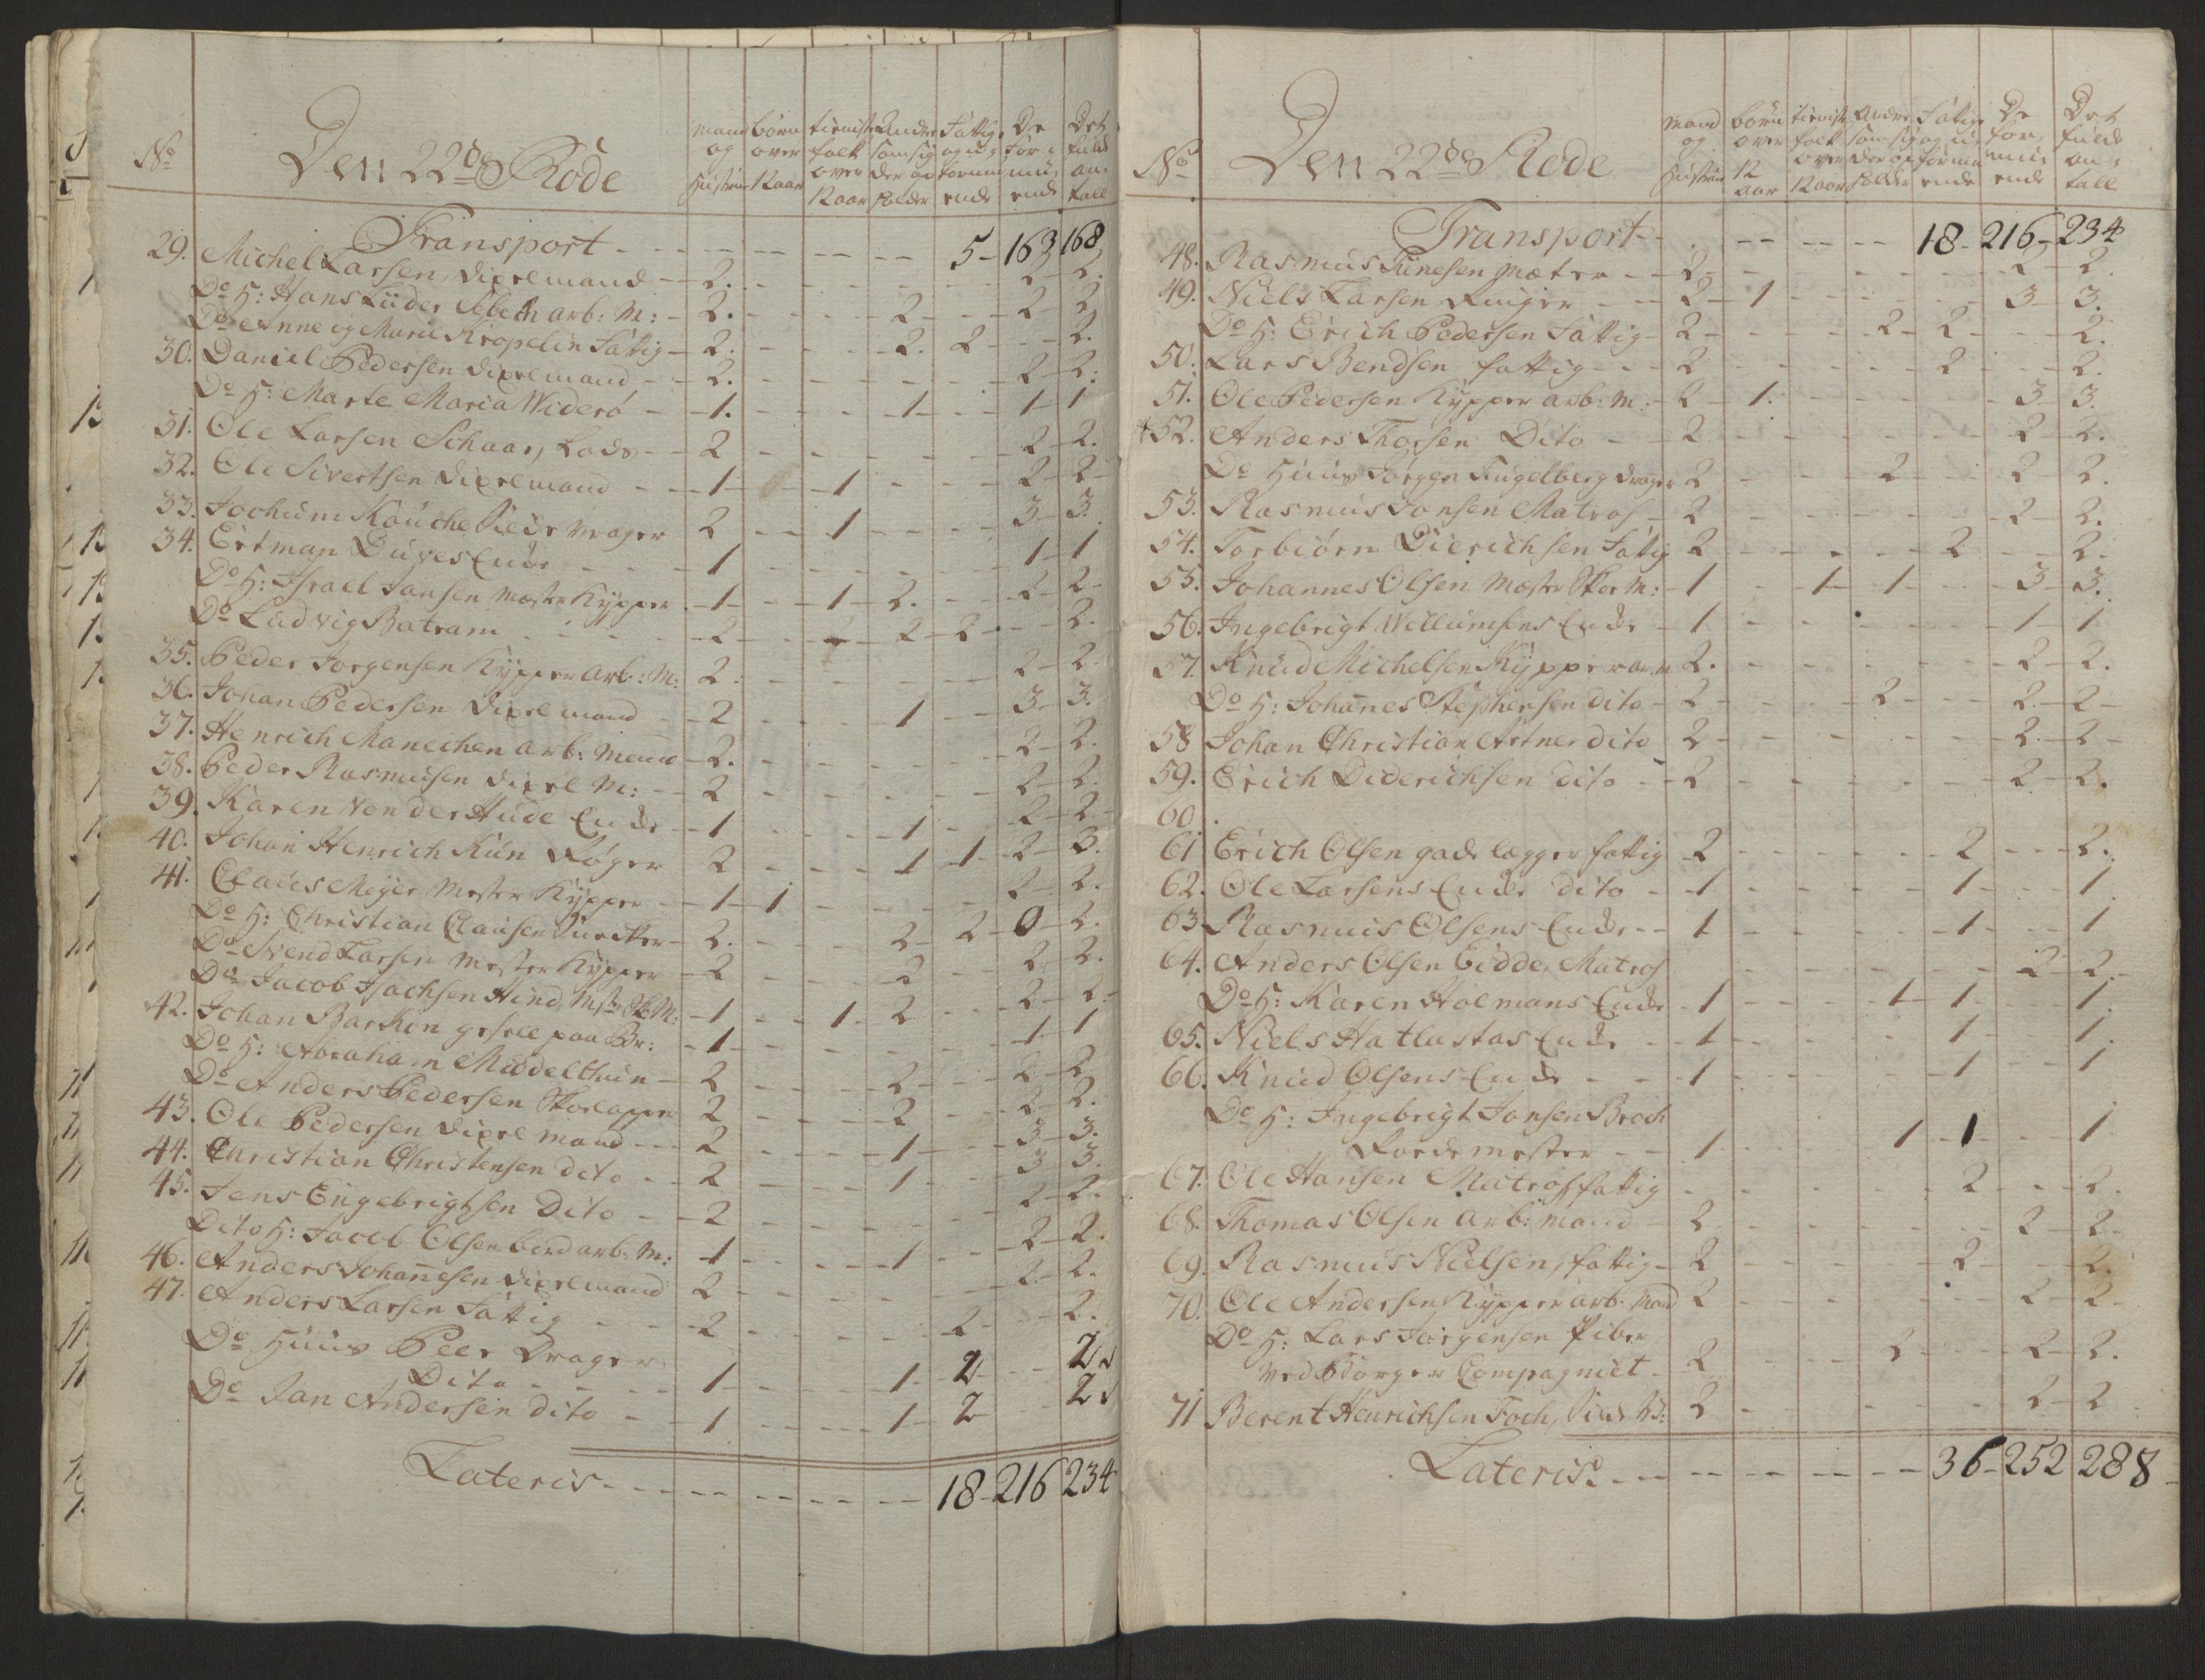 No Den 22de Rode mand og Hustru børn over 12 aar tieniste folk over 12 aar Andre som sig der op holder Fattige og u formu ende De for mu ende Det fulde an tall
Transport - - - - - 5 - 163 168
29. Michel Larsen, Dixelmand - 2. - - - 2 - 2.
Do H: Hans Lüder arb: M: - 2. - - 2 - - 2 - 2
Do Anne og Marie Kropelin Fattig - 2. - - 2. 2 - - 2.
30. Daniel Pedersen Dixelmand - 2. - - - 2 - 2.
Do H: Marte Maria Widerö - 1. - - 1 - - 1 - 1
31. Ole Larsen Schaar, Lods - 2 - - - 2 - 2.
32. Ole Sivertsen Dixelmand - 1 - 1 - - 2 - 2 -
33. Jochum Kouche Silde Vrager 2 - 1 - - 3 - 3.
34. Ertman Duves Enke - 1 - - - 1 - 1
Do H: Israel Jansen Mester Kypper - 1 - - 1 - 2. - 2 - 2 -
Do Ludvig Batram - 2 - - 2 - 2 - - 2.
35. Peder Jorgensen Kypper Arb: M: 2. - - - 2 - 2.
36. Johan Pedersen Dixelmand - 2 - - 1 - 3 - 3.
37. Henrich Manechen arb: Mand - 2. - - - 2 - 2.
38. Peder Rasmusen Dixel M: - 2 - - - 2 - 2.
39. Karen von der Hude Enke - 1 - - 1 - 2 - 2 -
40. Johan Henrich Kün Røger - 2 - - 1 1 - 2 - 3.
41. Claus Meyer Mester Kypper - 1 - 1 - - 2 - 2.
Do H: Christian Clausen Snecker - 2. - - 2 - 2 - 0 - 2.
Do Svend Larsen Mester Kypper - 2 - - 2 - 2 - 2.
Do Jacob Isachsen Hind, Mster Sko M: - 1 - - 1 - 2 - - 2 - 2 -
42. Johan Barkon gesell paa Br: - 1 - - - 1 - 1
Do H: Abraham Middelthun - 2 - - 2 - - 2 - 2.
Do Anders Pedersen Skoelapper 2 - - 2 - - 2 - 2.
43. Ole Pedersen Dixelmand - 2 - - 1 - - 3 - 3.
44. Christian Christensen Dito - 2 - - 1 - - 3 - 3.
45. Jens Engebrigtsen Dito - 2 - - - 2 - 2.
Dito H: Jacob Olsen arb: M: - 1 - - 1 - - 2 - 2.
46. Anders Johannesen Dixelmand 2 - - - 2 - 2.
47. Anders Larsen Fattig - 2 - - - 2 - - 2.
Do Huus Peer Drager
Dito - 1 - - 1 - 2 - - 2
Do Jan Andersen Dito - 1 - - 1 - 2 - 2
Lateris - - - - - 18 - 216 234
No Den 22de Rode mand og Hustru børn over 12 aar tieniste folk over 12 aar Andre som sig der op holder Fatige og u formu ende De for mu ende Det fulde an tall
Transport - - - - - 18 - 216 - 234
48. Rasmus Tünesen Mæter - 2 - - - 2 - 2.
49. Niels Larsen Ringer - 2 - 1 - - - 3 - 3.
Do H: Erich Pedersen Fattig - 2 - - - 2 - 2 - - 2.
50. Lars Bendsen fattig - 2 - - - 2 - - 2.
51. Ole Pedersen Kypper arb: M: - 2 - 1. - - - 3 - 3.
+52. Anders Thorsen Dito - 2 - - - 2 - 2.
Do Huus Jørgen Fugelberg Drager 2 - - 2 - - 2 - 2.
53. Rasmus Jonsen Matros - 2 - - - 2 - 2.
54. Torbiörn Dierichsen Fatig 2 - - - 2 - - 2.
55. Johannes Olsen Mester Skoe M: - 1 - 1 - 1 - - 3 - 3.
56. Ingebrigt Willumsens Enke - 1 - - - 1 - 1
57. Knud Michelsen Kypper arb: M 2. - - - 2 - 2.
Do H: Johannes Stephensen Dito - 2 - - - 2 - - 2 - 2 -
58 Johan Christian Artner Dito 2 - - - 2 - 2 -
59. Erich Diderichsen Dito - 2 - - - 2 - 2.
60.
61 Erich Olsen gade lægger fattig 2 - - - 2 - - 2.
62. Ole Larsens Enke Dito - 1 - - - 1 - - 1
63 Rasmus Olsens Enke - 1 - - - 1 - - 1
64. Anders Olsen Eidde, Matros - - - 2 - 2.
Do H: Karen Holmans Enke - 1 - - - 1 - 1 - - 1.
65. Niels Hatlastas Enke - 1 - - - 1 - - 1.
66. Knud Olsens Enke - 1 - - - 1 - - 1
Do H: Ingebrigt Jonsen Broch
Rodemester - 1 - - - 1 - 1 - - 1
67. Ole Hansen Matros fattig - - - 2 - - 2.
68. Thomas Olsen arb: Mand - 2 - - - 2 - 2 -
69. Rasmus Nielsen, fattig - 2 - - - 2 - - 2.
70. Ole Andersen Kypper arb: Mand 2 - - - 2 - 2 -
Do H: Lars Jørgensen Piber
ved Borger Compagniet - 2 - - 2 - - 2 - 2.
71 Berent Henrichsen Foch, Silde Vr: 2 - - - 2 - 2
Lateris - - - - - 36 - 252 288